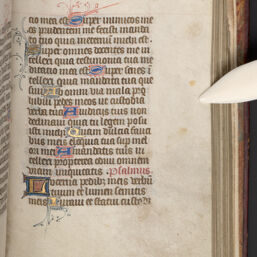 tatio mea est Super inimicos me
os prudentem me fecisti manda
to tuo quia in eternum michi est
Super omnes docentes me in
tellexi quia testimonia tua me
ditatio mea est Super senes i
tellexi quia mandata tua que
Ab omni via mala pro
hibui pedes meos ut custodia
verba tua A iudiciis tuis non
declinaui quia tu legem posu
isti michi Quam dulcia fauci
bus meis eloquia tua super mel
ori meo A mandatis tuis in
tellexi propterea odiui omnem
viam iniquitatis Psalmus
Lucerna pedibus meis verbum
tuum et lumen semitis
meis Iuraui et statui custodi